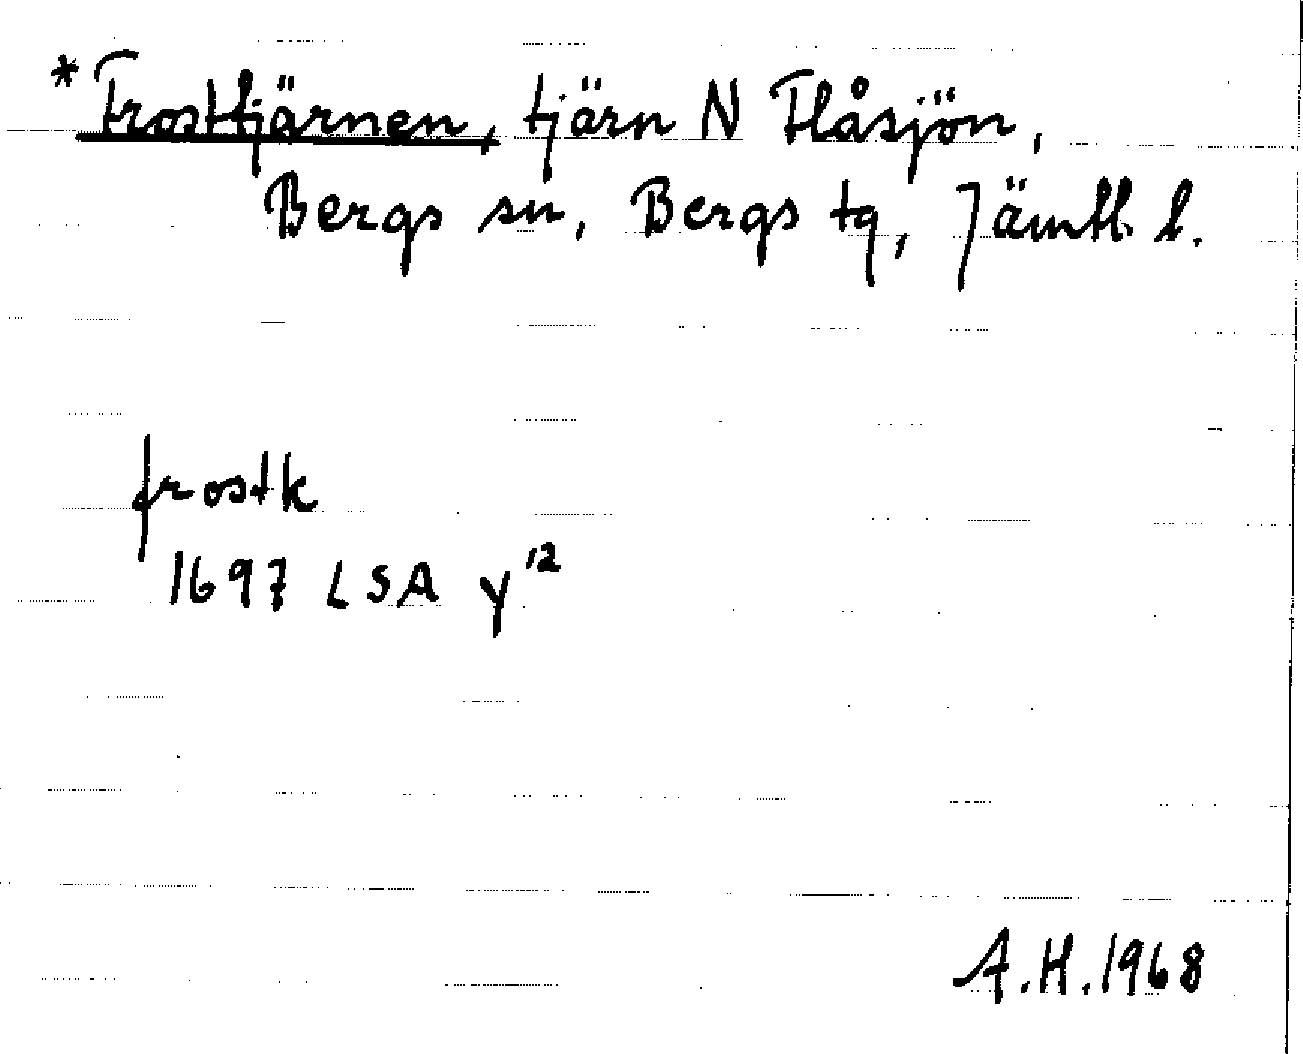 *Frosttjärnen, tjärn N Flåsjön,
Bergs sn, Bergs tg, Jämtl. l.
frostk
1697 LSA Y¹²
A.H. 1968